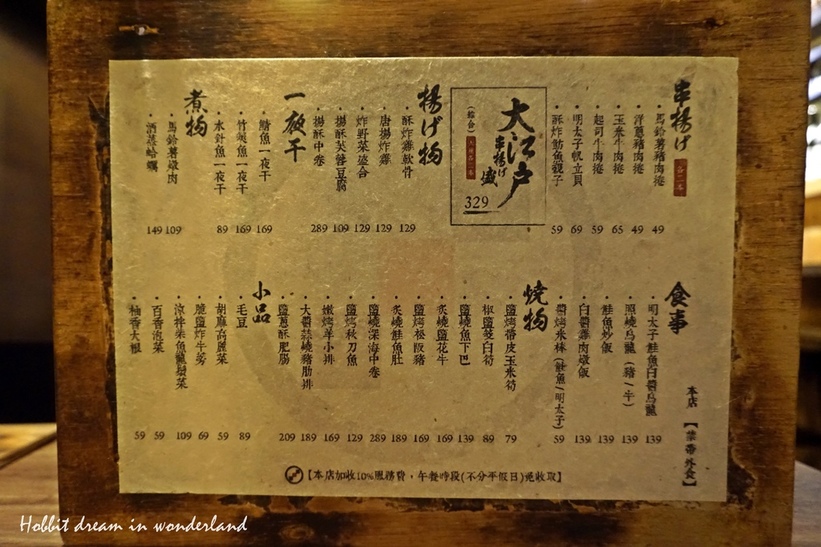 串揚げ
各一本
・馬鈴薯豬肉捲 49
・洋蔥豬肉捲 49
・玉米牛肉捲 65
・起司牛肉捲 59
・明太子帆立貝 69
・酥炸魴魚親子 59
大江戶
串揚げ
盛
(綜合)
329
揚げ物
・酥炸雞軟骨 129
・唐揚炸雞 129
・炸野菜盛合 129
・揚酥芙蓉豆腐 109
・揚酥中卷 289
一夜干
・鯖魚一夜干 169
・竹筴魚一夜干 169
・水針魚一夜干 89
煮物
・馬鈴薯燉肉 109
・酒蒸蛤蠣 149
本店【禁帶外食】
食事
・明太子鮭魚白醬烏龍 139
・照燒烏龍(豬/牛) 139
・鮭魚炒飯 139
・白醬雞肉燉飯 139
・醬烤米棒(鮭魚/明太子) 59
燒物
・鹽烤帶皮玉米筍 79
・椒鹽茭白筍 89
・鹽燒魚下巴 139
・炙燒鹽花牛 169
・鹽烤松阪豬 169
・炙燒鮭魚肚 189
・鹽燒深海中卷 289
・鹽烤秋刀魚 129
・嫩烤羊小排 169
・大醬蒜燒豬肋排 189
・鹽蔥酥肥腸 209
小品
・毛豆 89
・胡麻高麗菜 59
・脆鹽炸牛蒡 69
・涼拌柴魚龍鬚菜 109
・百香泡菜 59
・柚香大根 59
【本店加收10%服務費，午餐時段(不分平假日)免收取】
Hobbit dream in wonderland